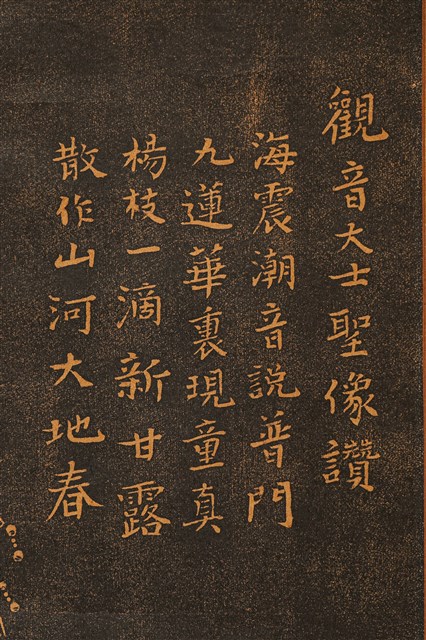 觀音大士聖像讚
海震潮音説普門
九蓮華裏現童真
楊枝一滴新甘露
散作山河大地春